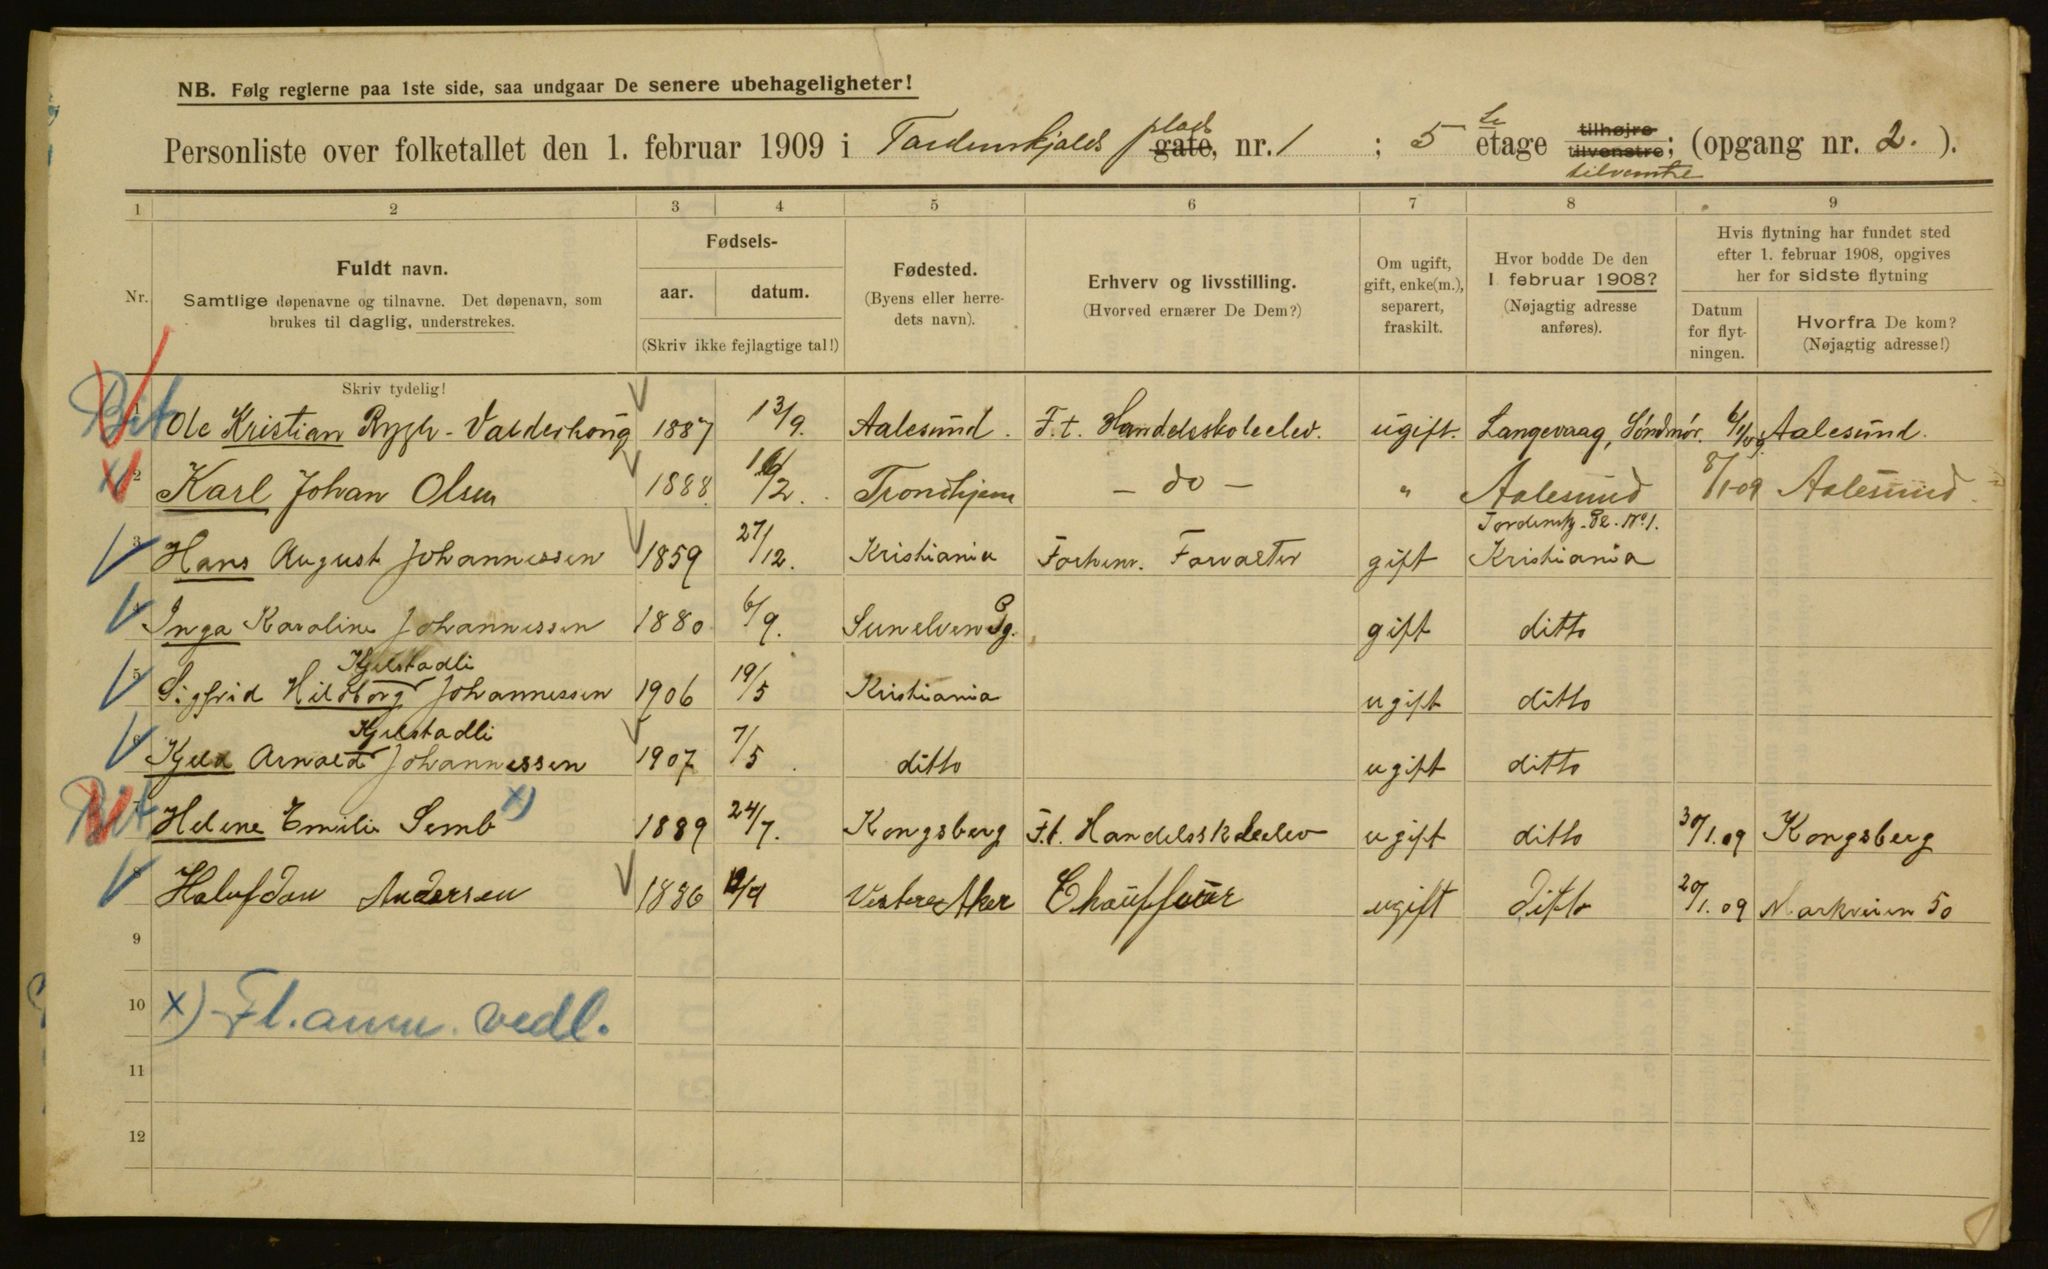 NB. Følg reglerne paa 1ste side, saa undgaar De senere ubehageligheter!
Personliste over folketallet den 1. februar 1909 i Tordenskjolds plads gate, nr. 1 ; 5 te etage tilhøjre tilvenstre; tilvenstre (opgang nr. 2. ).
1 2 3 4 5 6 7 8 9
Nr.
Fuldt navn.
Samtlige døpenavne og tilnavne. Det døpenavn, som
brukes til daglig, understrekes.
Fødsels-
aar. datum.
(Skriv ikke fejlagtige tal!)
Fødested.
(Byens eller herre-
dets navn).
Erhverv og livsstilling.
(Hvorved ernærer De Dem?)
Om ugift,
gift, enke(m.),
separert,
fraskilt.
Hvor bodde De den
1 februar 1908?
(Nøjagtig adresse
anføres).
Hvis flytning har fundet sted
efter 1. februar 1908, opgives
her for sidste flytning
Datum
for flyt-
ningen.
Hvorfra De kom?
(Nøjagtig adresse!)
Skriv tydelig!
Bit 1 Ole Kristian Rygh-Valderhoug 1887 13/9. Aalesund. F.t. Handelsskoleelev. ugift. Langevaag, Søndmør. 6/1/09 Aalesund.
x) 2 Karl Johan Olsen 1888 16/2. Trondhjem — do — " Aalesund 8/1-09 Aalesund.
Tordenskj. Pl. No 1.
3 Hans August Johannessen 1859 27/12. Kristiania Forhenv. Forvalter gift Kristiania
4 Inga Karoline Johannessen 1880 6/9. Sunelven Pg. gift ditto
Kjelstadli
5 Sigfrid Hildborg Johannessen 1906 19/5 Kristiania ugift ditto
Kjelstadli
6 Kjell Arnold Johannessen 1907 7/5 ditto ugift ditto
Bit. 7 Helene Emilie Semb x) 1889 24/7. Kongsberg F.t. Handelsskoleelev ugift ditto 30/1.09 Kongsberg
8 Halvdan Andersen 1886 /9 Vestere Aker Chauffeur ugift ditto 20/1.09 Markveien 50
9
10 x) Fl. anm. vedl.
11
12